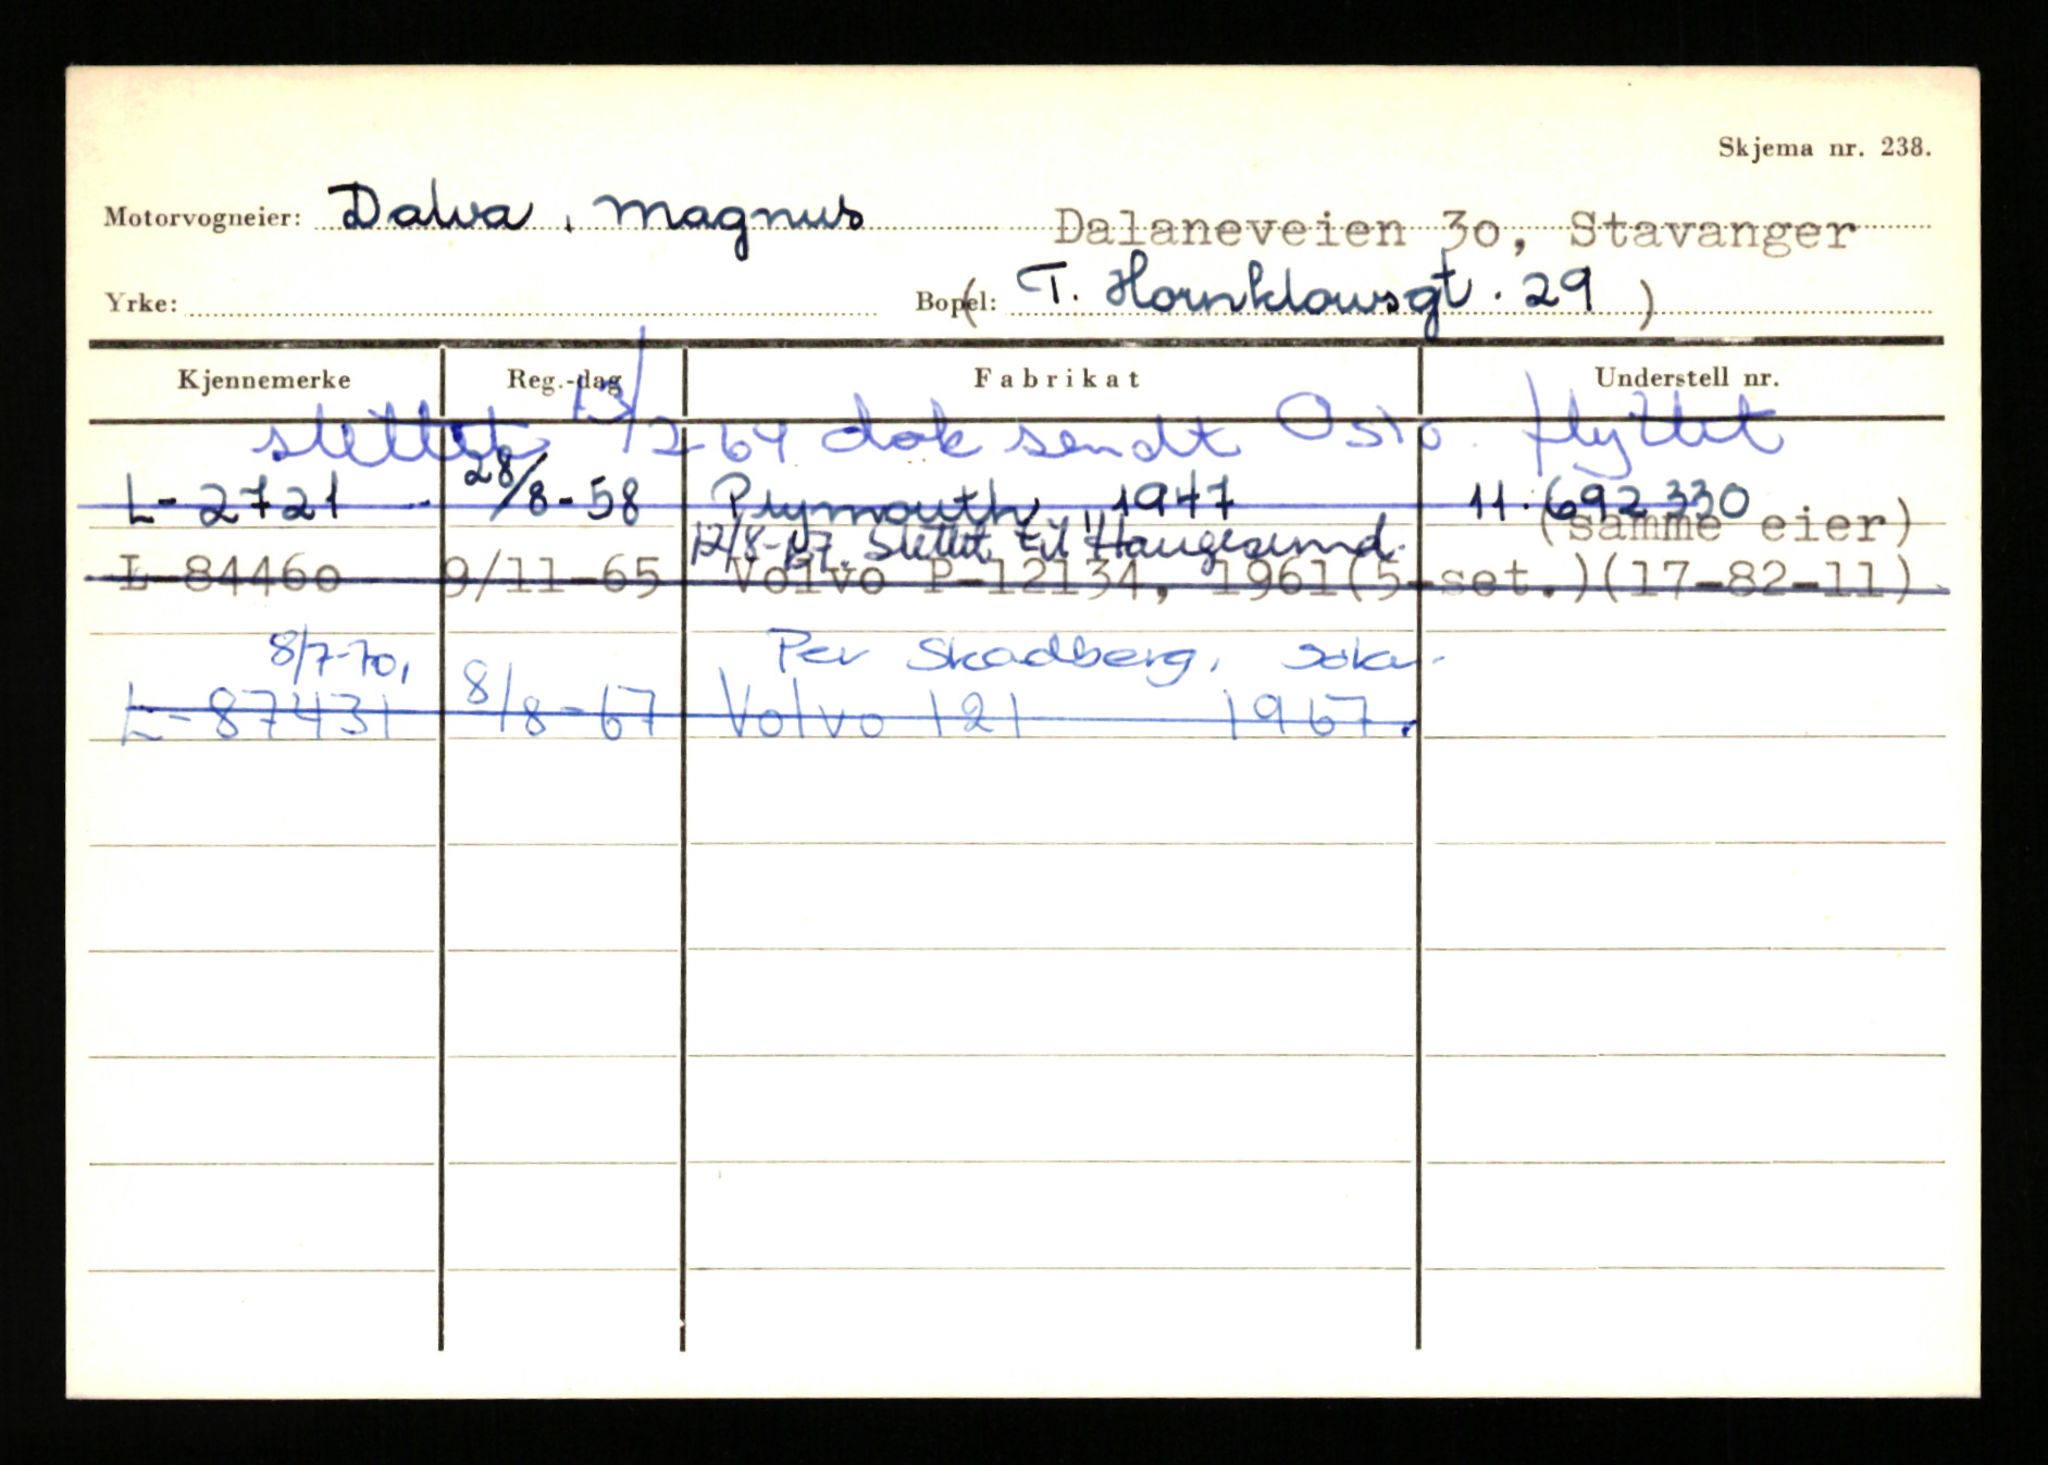 Skjema nr. 238.
Motorvogneier: Dalva, Magnus Dalaneveien 30, Stavanger
Yrke: Bopel: (T. Hornklowsgt. 29)
Kjennemerke Reg.-dag Fabrikat Understell nr.
slettet 13/2-64 dok sendt Oslo. flyttet
L-2721 28/8-58 Plymouth 1947 11.692330
(samme eier)
12/8-67. Slettet til Haugesund.
L-84460 9/11-65 Volvo P-12134, 1961(5-set.)(17-82-11)
8/7-70, Per Skadberg, Sola.
L-87431 8/8-67 Volvo 121 1967.